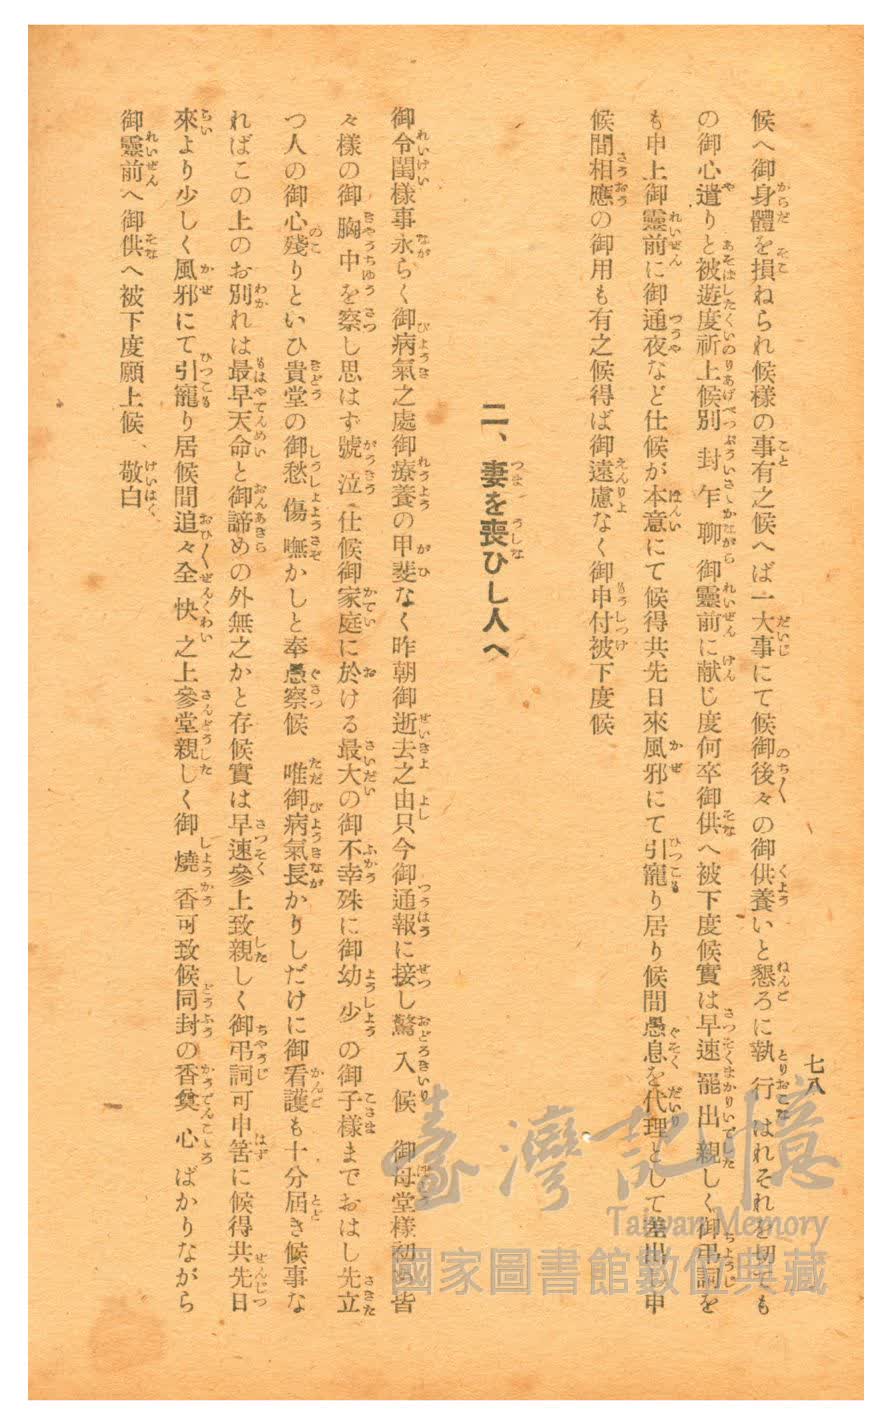 七八
候へ御身體を損ねられ候樣の事有之候へば一大事にて候御後々の御供養いと懇ろに執行はれそれを切ても
の御心遣りと被遊度祈上候別封乍聊御靈前に献じ度何卒御供へ被下度候實は早速罷出親しく御弔詞を
も申上御靈前に御通夜など仕候が本意にて候得共先日來風邪にて引寵り居り候間愚息を代理として差出し申
候間相應の御用も有之候得ば御遠慮なく御申付被下度候
二、妻を喪ひし人へ
御令閨樣事永らく御病氣之處御療養の甲斐なく昨朝御逝去之由只今御通報に接し驚入候 御母堂樣初め皆
々樣の御胸中を察し思はず號泣仕候御家庭に於ける最大の御不幸殊に御幼少の御子樣までおはし先立
つ人の御心殘りといひ貴堂の御愁傷嘸かしと奉愚察候 唯御病氣長かりしだけに御看護も十分屆き候事な
ればこの上のお別れは最早天命と御諦めの外無之かと存候實は早速參上致親しく御弔詞可申筈に候得共先日
來より少しく風邪にて引寵り居候間追々全快之上參堂親しく御燒香可致候同封の香奠心ばかりながら
御靈前へ御供へ被下度願上候、敬白
臺灣記憶
Taiwan Memory
國家圖書館數位典藏